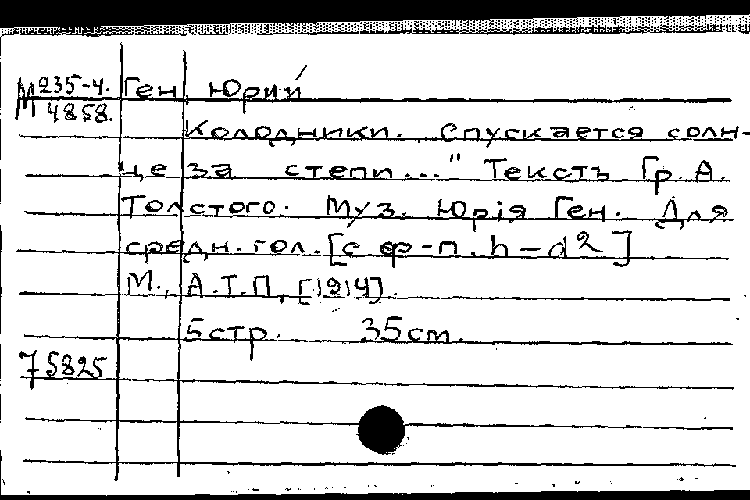 М 235-4. Ген Юрий
4858.
Колодники. Спускается солн-
це за степи..." Текстъ Гр. А.
Толстого. Муз. Юрія Ген. Для
средн. гол. [с ф-п. h-d2]
М., А.Т.П, [1914].
5 стр. 35 см.
75825